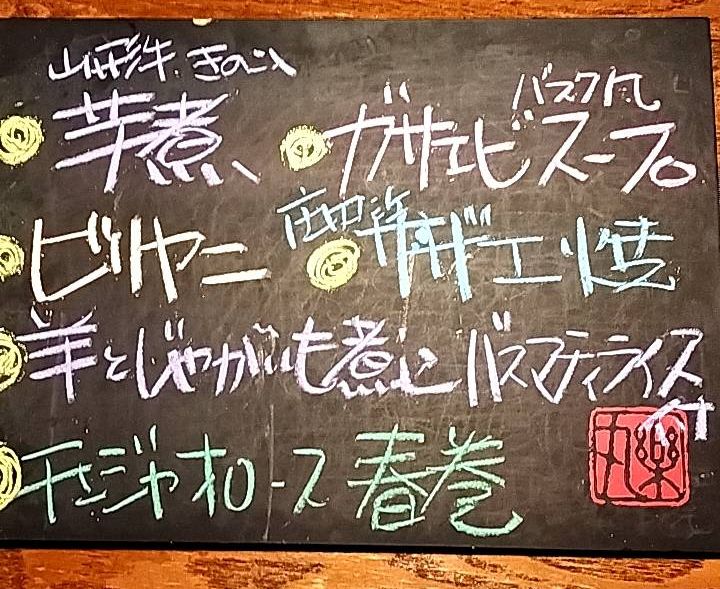 山形牛、きのこ入
芋煮
バスク風
ガサエビスープ
ビリヤニ
庄内浜
サザエ焼
羊とじゃがいも煮込 バスマティライス付
チンジャオロース 春巻